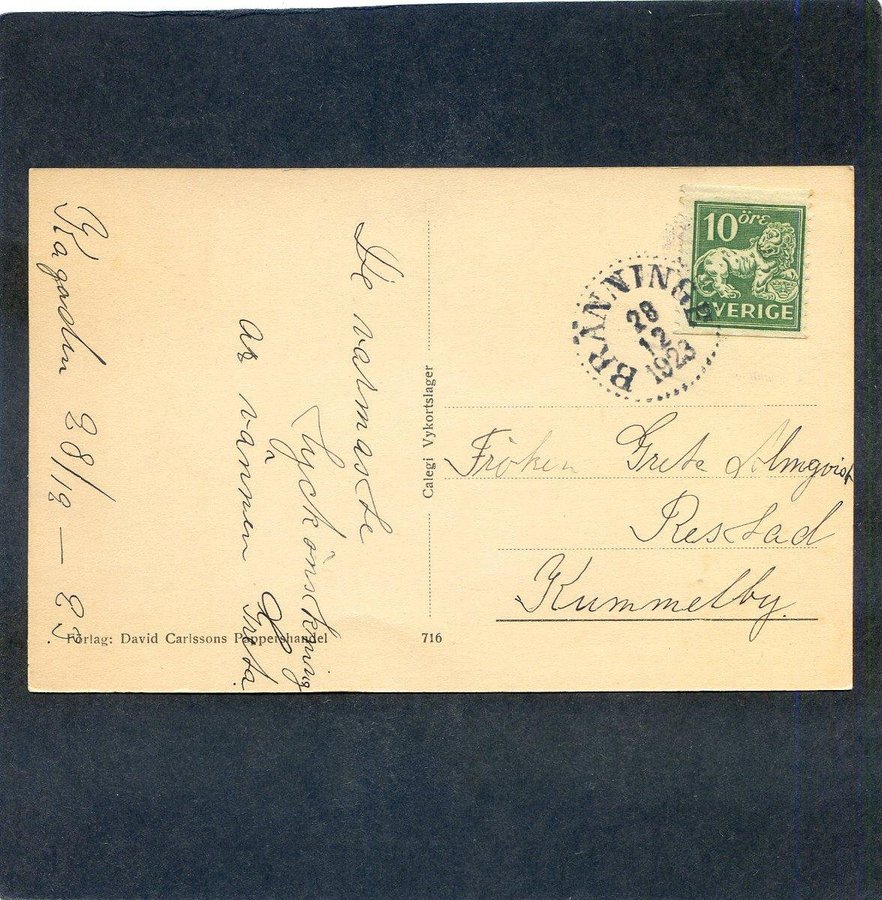 Kagården 28/12 – 23
De varmaste
lyckönskning
à
av vännen Greta
Calegi Vykortslager
Förlag: David Carlssons Pappershandel
716
10 öre
SVERIGE
28
12
1923
Fröken Greta Almqvist
Restad
Kummelby.